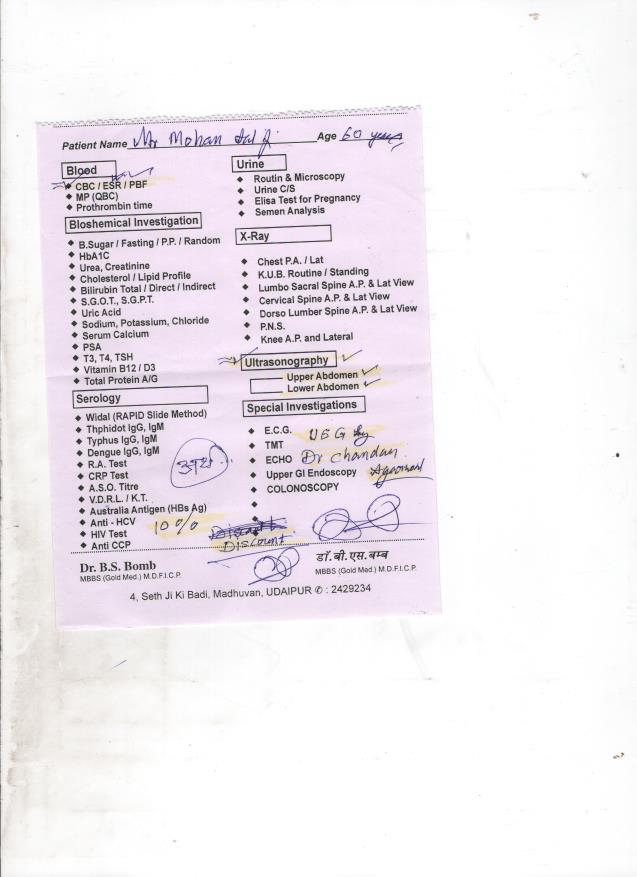 Patient Name Mr Mohan Lal Ji Age 60 years
Blood
CBC / ESR / PBF
MP (QBC)
Prothrombin time
Bioshemical Investigation
B.Sugar / Fasting / P.P. / Random
HbA1C
Urea, Creatinine
Cholesterol / Lipid Profile
Bilirubin Total / Direct / Indirect
S.G.O.T., S.G.P.T.
Uric Acid
Sodium, Potassium, Chloride
Serum Calcium
PSA
T3, T4, TSH
Vitamin B12 / D3
Total Protein A/G
Serology
Widal (RAPID Slide Method)
Thphidot IgG, IgM
Typhus IgG, IgM
Dengue IgG, IgM
R.A. Test
CRP Test
A.S.O. Titre
V.D.R.L. / K.T.
Australia Antigen (HBs Ag)
Anti - HCV
HIV Test
Anti CCP
10%
Urine
Routin & Microscopy
Urine C/S
Elisa Test for Pregnancy
Semen Analysis
X-Ray
Chest P.A. / Lat
K.U.B. Routine / Standing
Lumbo Sacral Spine A.P. & Lat View
Cervical Spine A.P. & Lat View
Dorso Lumber Spine A.P. & Lat View
P.N.S.
Knee A.P. and Lateral
Ultrasonography
Upper Abdomen
Lower Abdomen
Special Investigations
E.C.G.
TMT
ECHO
Upper GI Endoscopy
COLONOSCOPY
USG by
Dr Chandan
Agarwal
Discount
Dr. B.S. Bomb
MBBS (Gold Med.) M.D.F.I.C.P.
डॉ.बी.एस.बम्ब
MBBS (Gold Med.) M.D.F.I.C.P.
4, Seth Ji Ki Badi, Madhuvan, UDAIPUR ✆ : 2429234